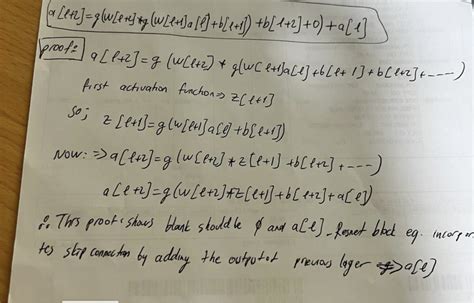 a[l+2]=g(w[l+2]*g(w[l+1]a[l]+b[l+1])+b[l+2]+0)+a[l]
proof:
a[l+2]=g(w[l+2]*g(w[l+1]a[l]+b[l+1]+b[l+2]+----)
first activation function=>z[l+1]
So;
z[l+1]=g(w[l+1]a[l]+b[l+1])
Now:=>a[l+2]=g(w[l+2]*z[l+1]+b[l+2]+---)
a[l+2]=g(w[l+2]*z[l+1]+b[l+2]+a[l])
∴ This proof shows blank should be φ and a[l]. Resnet block eq. incorpor
tes skip connection by adding the output of previous layer =>a[l]